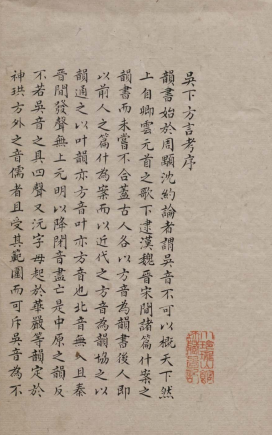 吳下方言考序
韻書始於周顒沈約論者謂吳音不可以槪天下然
上自卿雲元首之歌下逮漢魏晉宋間諸篇什案之
韻書而未嘗不合蓋古人各以方音為韻書後人即
以前人之篇什為案而以近代之方音為韻協之以
韻通之以叶韻亦方音叶亦方音也北音無入且秦
晉間發聲無上元明以降閉音盡亡是中原之韻反
不若吳音之具四聲又況字母起於華嚴等韻定於
神珙方外之音儒者且受其範圍而可斥吳音為不